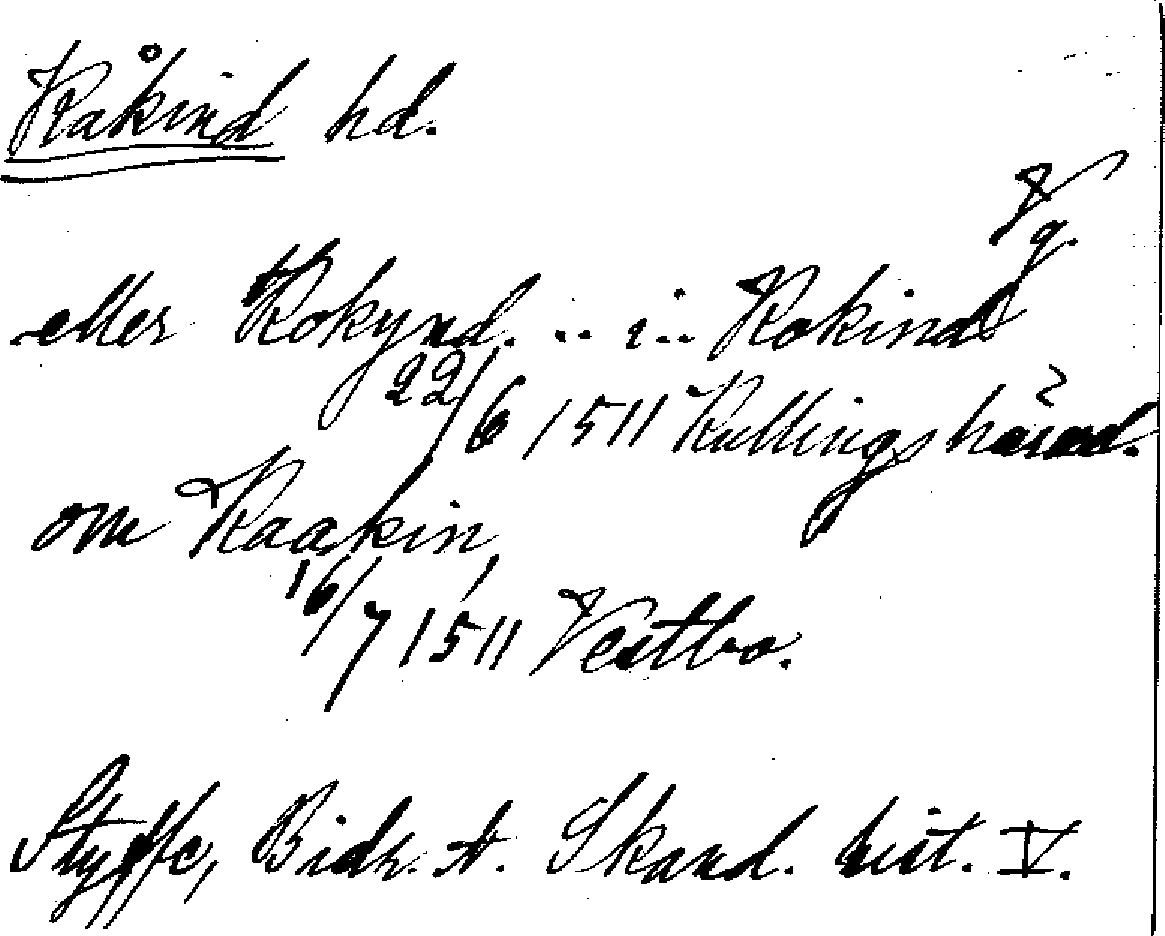 Kåkind hd.
Vg.
eller Kokynd. .. i .. Kokind
22/6 1511 Kullings härad.
om Kaakin,
16/7 1511 Vestbo.
Styffe, Bidr. t. Skand. hist. V.